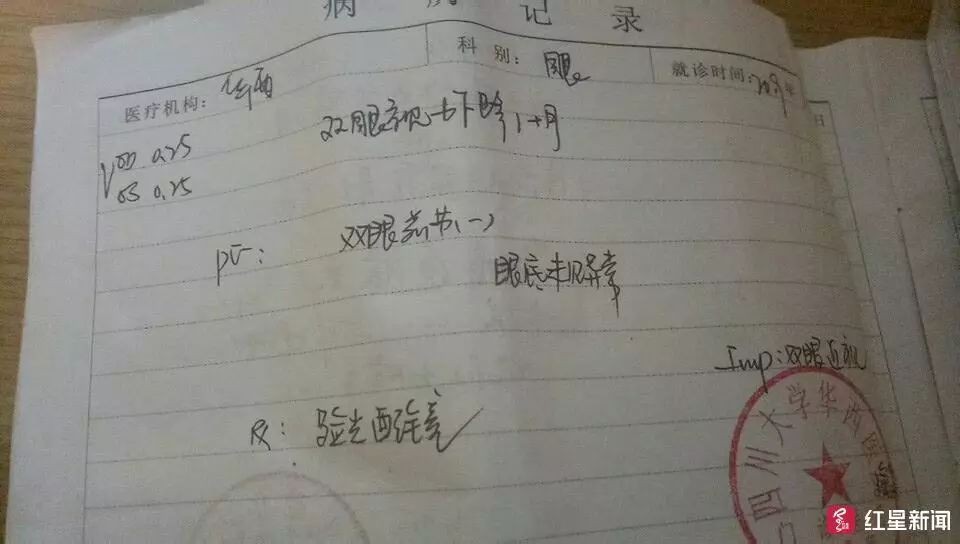 病 历 记 录
医疗机构：华西 科 别：眼 就诊时间：2009年
日
V OD 0.25 双眼视力下降1+月
OS 0.25
PE： 双眼前节(-)
眼底未见异常
Imp：双眼近视
Rx：验光配镜
四川大学华西医
红星新闻